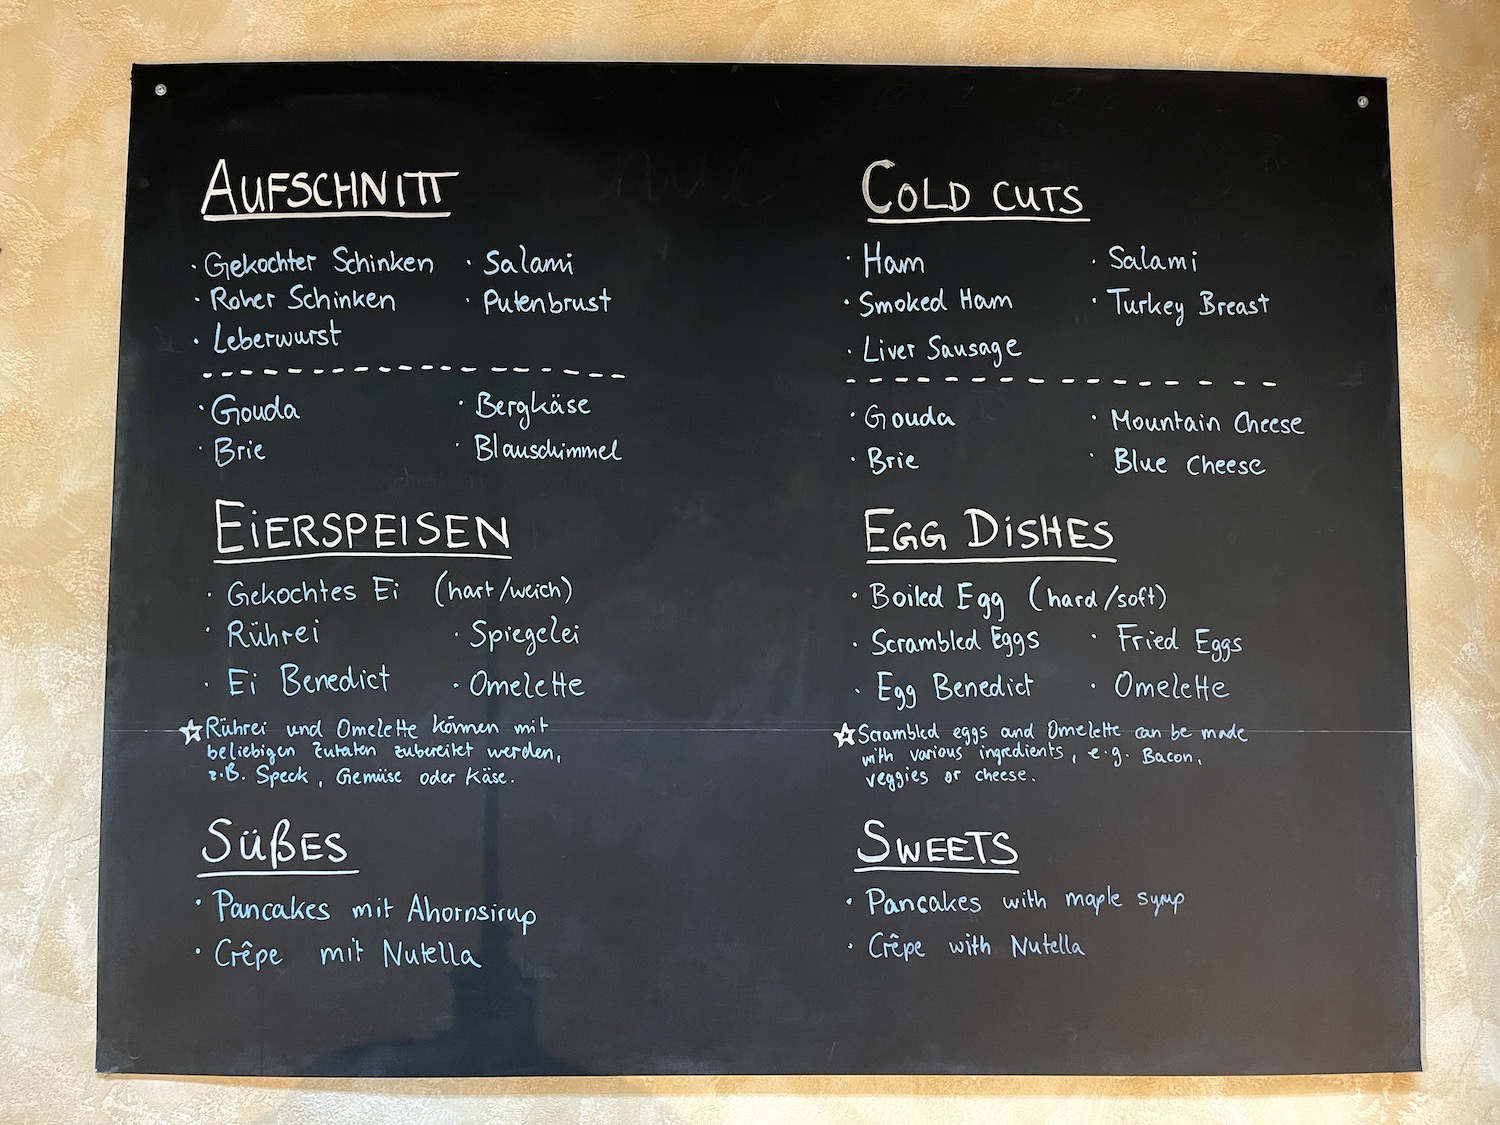 AUFSCHNITT
· Gekochter Schinken · Salami
· Roher Schinken · Putenbrust
· Leberwurst
· Gouda · Bergkäse
· Brie · Blauschimmel
EIERSPEISEN
· Gekochtes Ei (hart/weich)
· Rührei · Spiegelei
· Ei Benedict · Omelette
☆ Rührei und Omelette können mit
beliebigen Zutaten zubereitet werden,
z.B. Speck, Gemüse oder Käse.
SÜßES
· Pancakes mit Ahornsirup
· Crêpe mit Nutella
COLD CUTS
· Ham · Salami
· Smoked Ham · Turkey Breast
· Liver Sausage
· Gouda · Mountain Cheese
· Brie · Blue Cheese
EGG DISHES
· Boiled Egg (hard/soft)
· Scrambled Eggs · Fried Eggs
· Egg Benedict · Omelette
☆ Scrambled eggs and Omelette can be made
with various ingredients, e.g. Bacon,
veggies or cheese.
SWEETS
· Pancakes with maple syrup
· Crêpe with Nutella